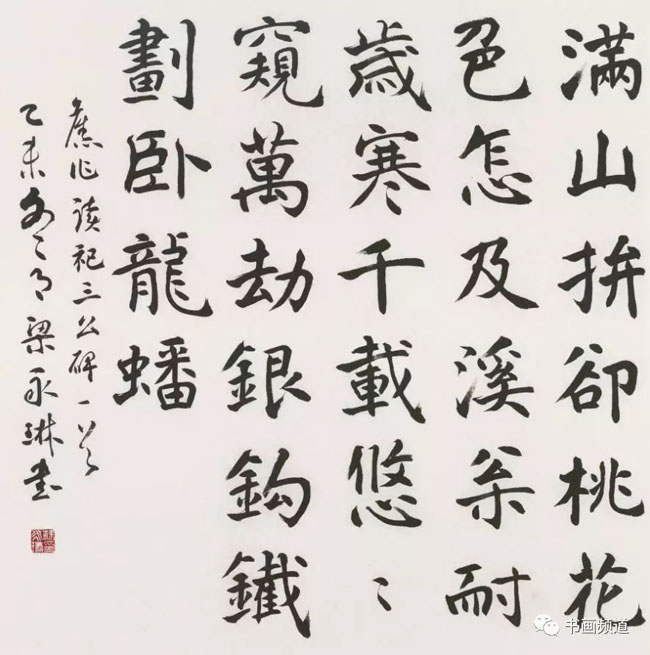 滿山拚卻桃花
色怎及溪枀耐
歲寒千載悠〻
窺萬劫銀鈎鐵
劃卧龍蟠
舊作讀祀三公碑一首
乙未冬月梁永琳書
书画频道